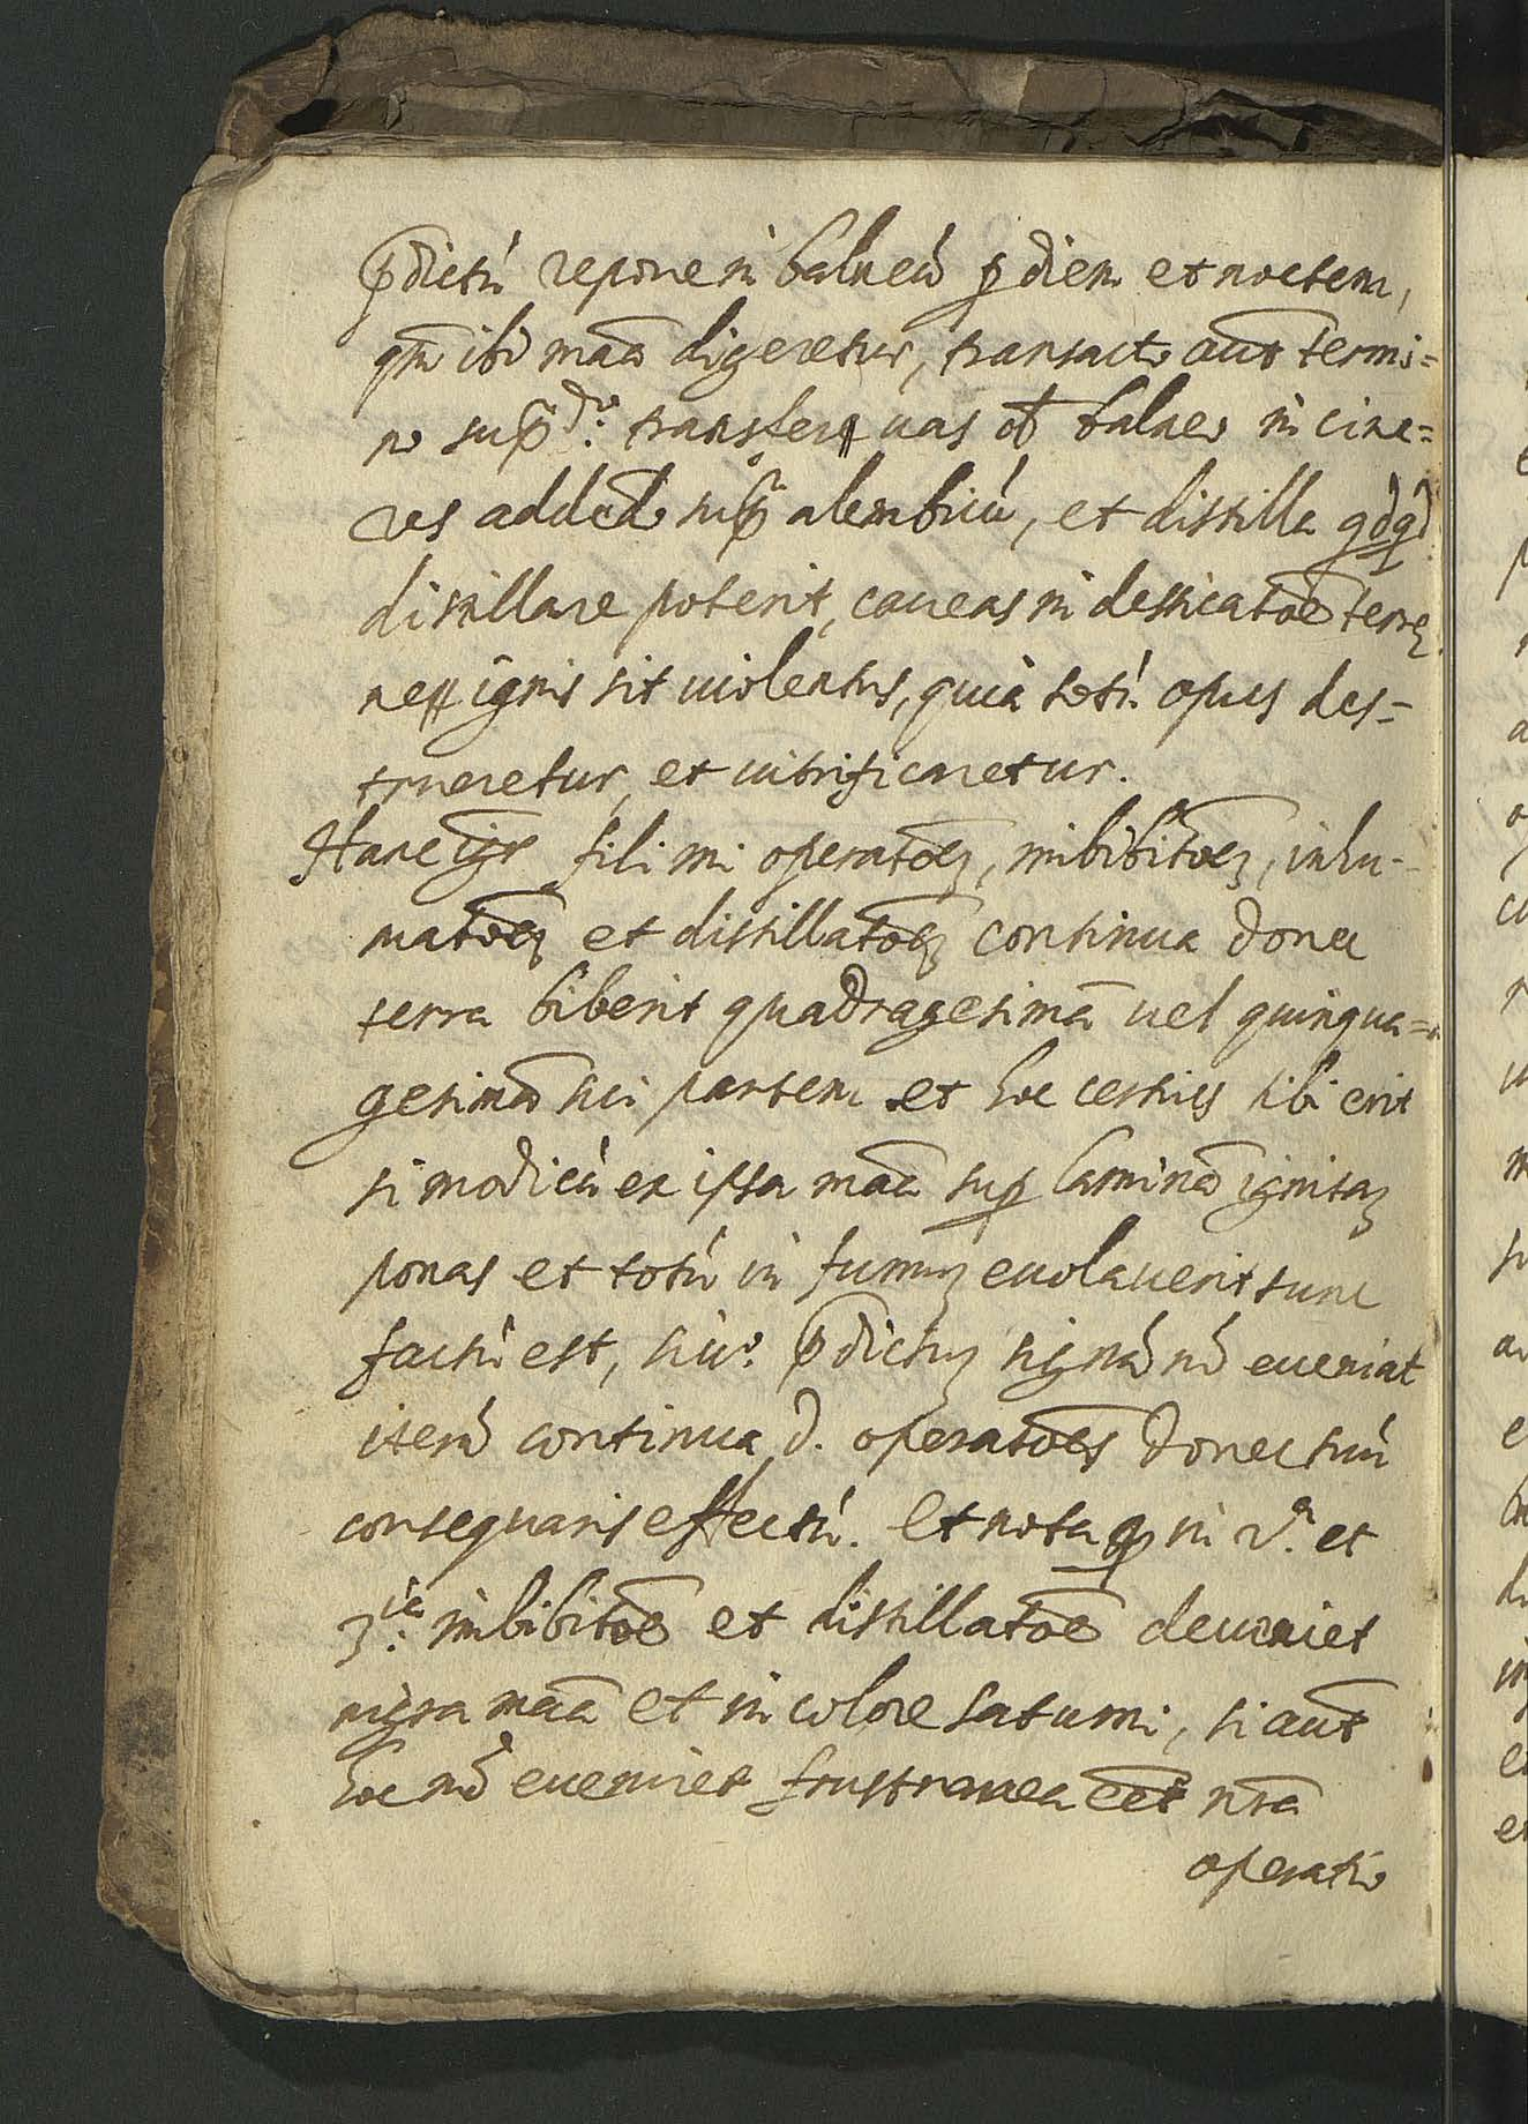 p̄dictū repone in balneū p diem et noctem,
qm̄ ibi maā digeretur, transacto aūt termi=
no sup̄do: transferas uas de balneo in cine=
res addedo sup̄ alembicū, et distilla qdqd
distillare poterit, caueas in dessicatōe terrę
ne ignis sit uiolentus, quia totū opus des=
trueretur, et uitrificaretur.
Hanc igr fili mi operatōez, imbibitōez, inhu-
matōez et distillatōez continua donec
terra biberit quadragesimā uel quinqua=
gesimā sui partem et hoc certius tibi erit
si modicū ex ipsa maā sup laminā ignitaz
ponas et totū in fumuz euolauerit tunc
factū est, si uo: p̄dictuz signū nō eueniat
iterū continua d. operatōes donec tuū
consequaris effectū. Et nota q in 2a. et
3ia: imbibitōe et distillatōe deueniet
nigra maā et in colore saturni, si aūt
hoc nō eueniret frustranea eēt nr̄a
operatio